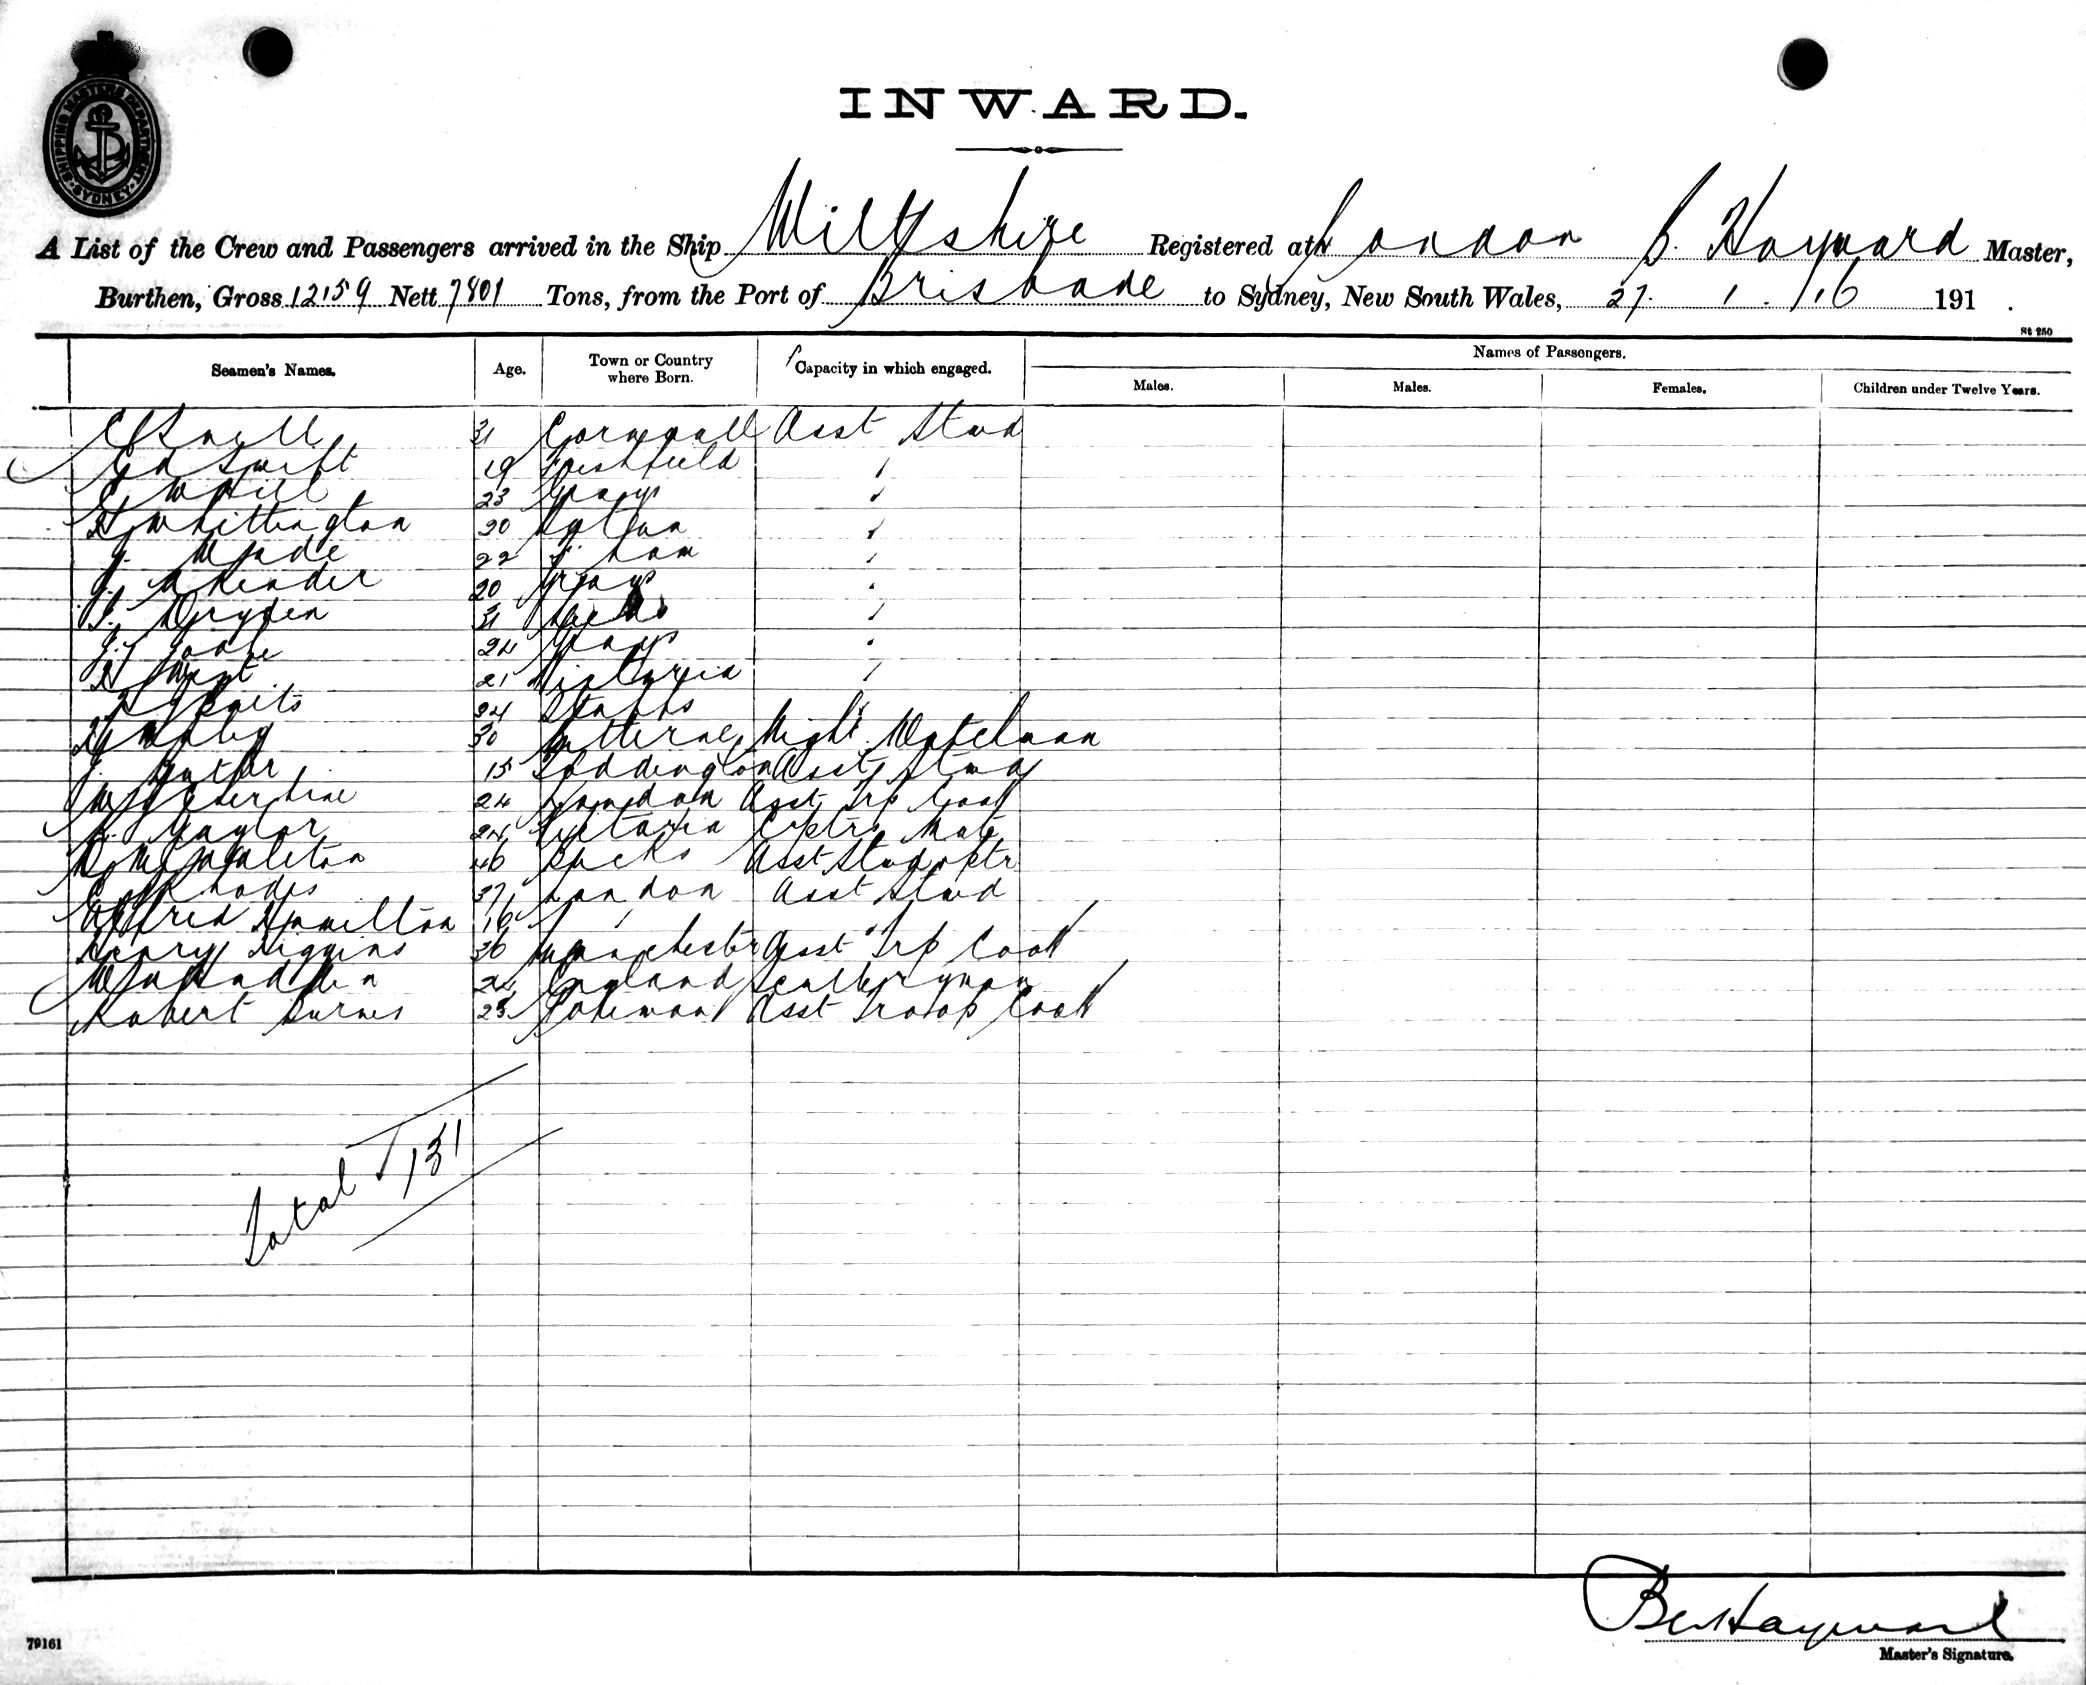 SHIPPING MASTERS DEPARTMENT · SYDNEY ·
INWARD.
A List of the Crew and Passengers arrived in the Ship Wiltshire Registered at London B. Hayward Master,
Burthen, Gross 12159 Nett 7801 Tons, from the Port of Brisbane to Sydney, New South Wales, 27. 1. 16 191 .
St 250
Seamen's Names. Age. Town or Country where Born. Capacity in which engaged. Names of Passengers.
Males. Males. Females. Children under Twelve Years.
C Snell 31 Cornwall Asst Stwd
Swift 19
W Hill 23 Grays
H Whittington 20
J. Wade 22
J. 20 Grays
Dryden 31
J. 24 Grays
H West 21 Victoria
24
30 Night Watchman
J. 15 Toddington Asst Stwd
W 24 London Asst Trp Cook
Taylor 24 Victoria Cptrs Mate
46 Bucks Asst Stwd
Rhodes 37 London Asst Stwd
Alfred Hamilton 16
Henry Higgins 36 Manchester Asst Trp Cook
24 England Sculleryman
Robert Burns 23 Asst Troop Cook
Total 131
B Hayward
79161
Master's Signature.